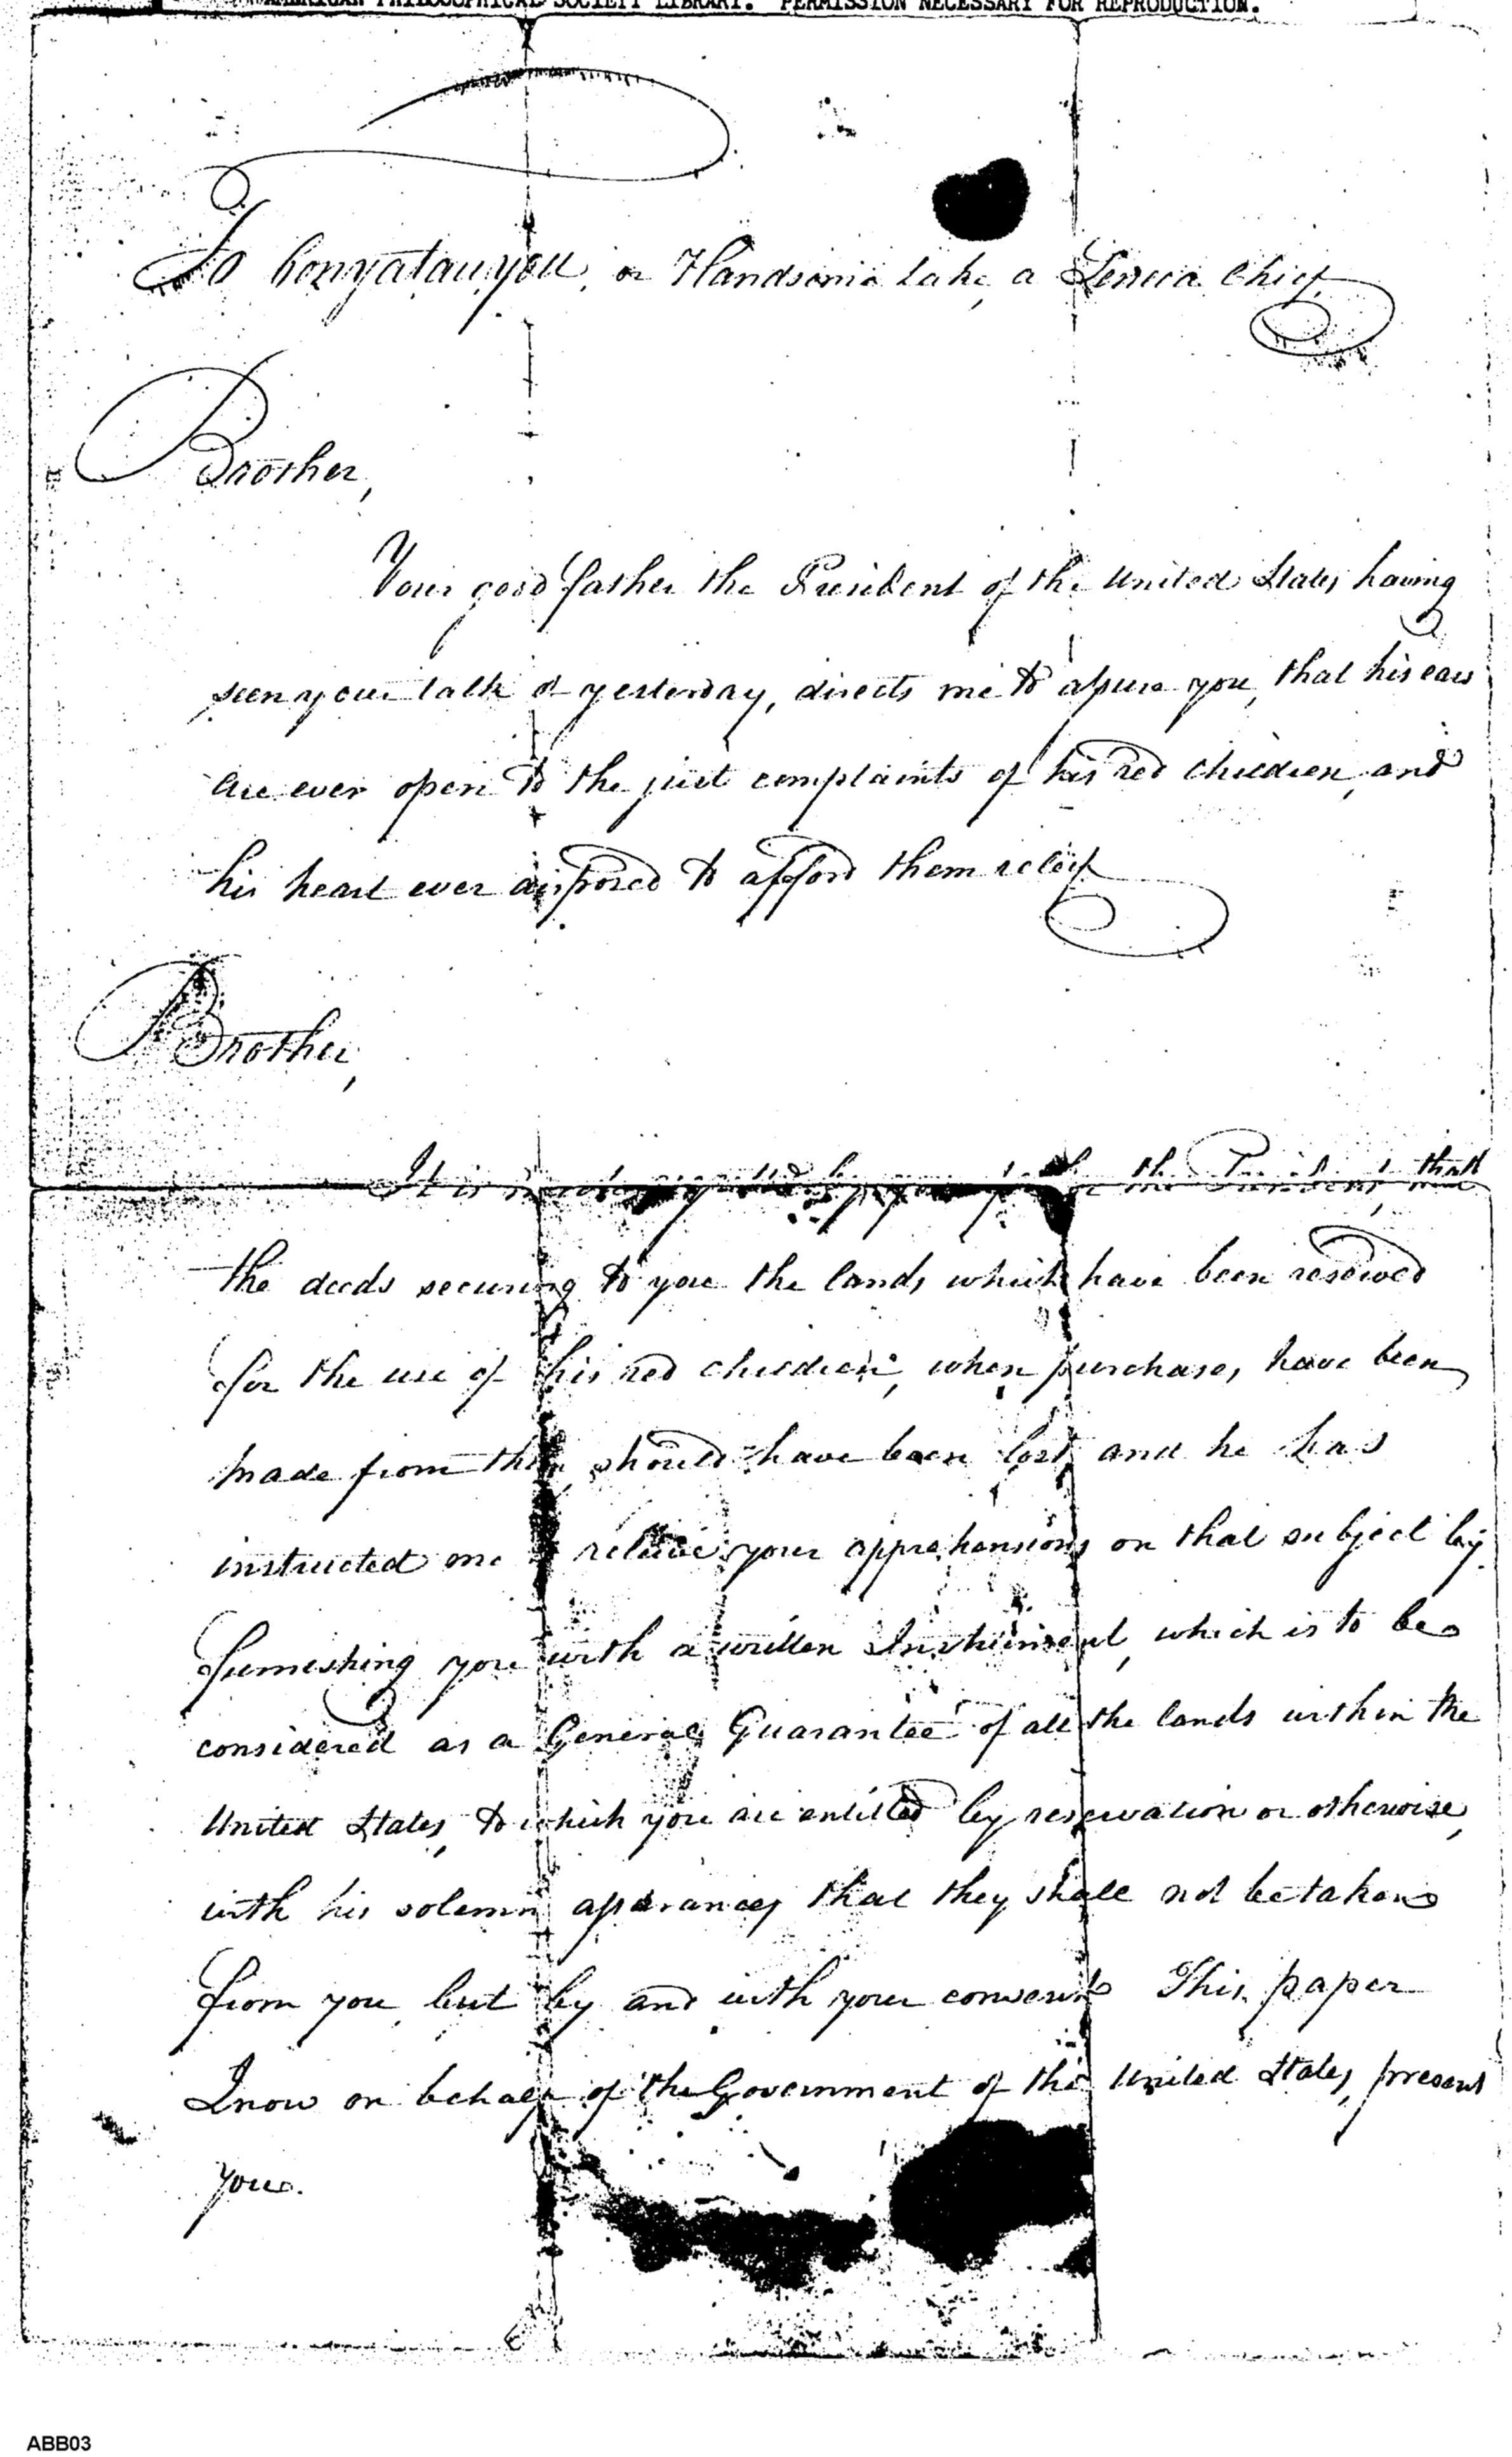 AMERICAN PHILOSOPHICAL SOCIETY LIBRARY. PERMISSION NECESSARY FOR REPRODUCTION.
To Conyatauyou, or Handsome Lake, a Seneca Chief.
Brother,
Your good father the President of the United States having
seen your talk of yesterday, directs me to assure you, that his ears
are ever open to the just complaints of his red children, and
his heart ever disposed to afford them relief
Brother,
It is the President, that
the deeds securing to you the lands which have been reserved
for the use of his red children, when purchases have been
made from them should have been lost, and he has
instructed me relieve your apprehensions on that subject by
furnishing you with a written Instrument, which is to be
considered as a General Guarantee of all the lands within the
United States, to which you are entitled by reservation or otherwise,
with his solemn assurances that they shall not be taken
from you, but by and with your consent This paper
I now on behalf of the Government of the United States, present
you.
ABB03